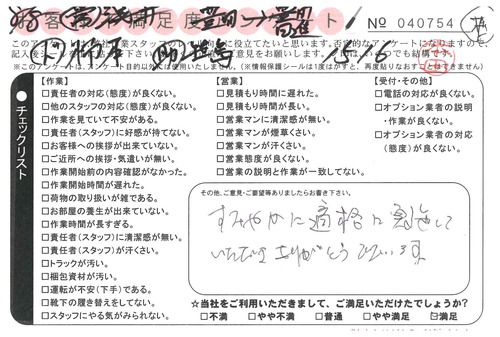 お客様満足度アンケート! No 040754
このアンケートは、弊社作業スタッフの
記入後スタッフまで
※このアンケートは、アンケート目的以外には使用いたしません。(※情報保護シールは1度はがすと、再度貼りなおすことはできません)
チェックリスト
【作業】
□責任者の対応(態度)が良くない。
□他のスタッフの対応(態度)が良くない。
□作業を見ていて不安がある。
□責任者(スタッフ)に好感が持てない。
□お客様への挨拶が出来ていない。
□ご近所への挨拶・気遣いが無い。
□作業開始前の内容確認がなかった。
□作業開始時間が遅れた。
□荷物の取り扱いが雑である。
□お部屋の養生が出来ていない。
□作業時間が長すぎる。
□責任者(スタッフ)に清潔感が無い。
□責任者(スタッフ)が汗くさい。
□トラックが汚い。
□梱包資材が汚い。
□運転が不安(下手)である。
□靴下の履き替えをしてない。
□スタッフにやる気がみられない。
【営業】
□見積もり時間に遅れた。
□見積もり時間が長い。
□営業マンに清潔感が無い。
□営業マンが煙草くさい。
□営業マンが汗くさい。
□営業態度が良くない。
□営業の説明と作業が一致してない。
【受付・その他】
□電話の対応が良くない。
□オプション業者の説明
・作業が良くない。
□オプション業者の対応
(態度)が良くない。
その他、ご意見・ご要望等ありましたらお書き下さい。
すみやかに適格に実施して
いただきありがとうございます
☆当社をご利用いただきまして、ご満足いただけたでしょうか?
□不満 □やや不満 □普通 □やや満足 ☑満足